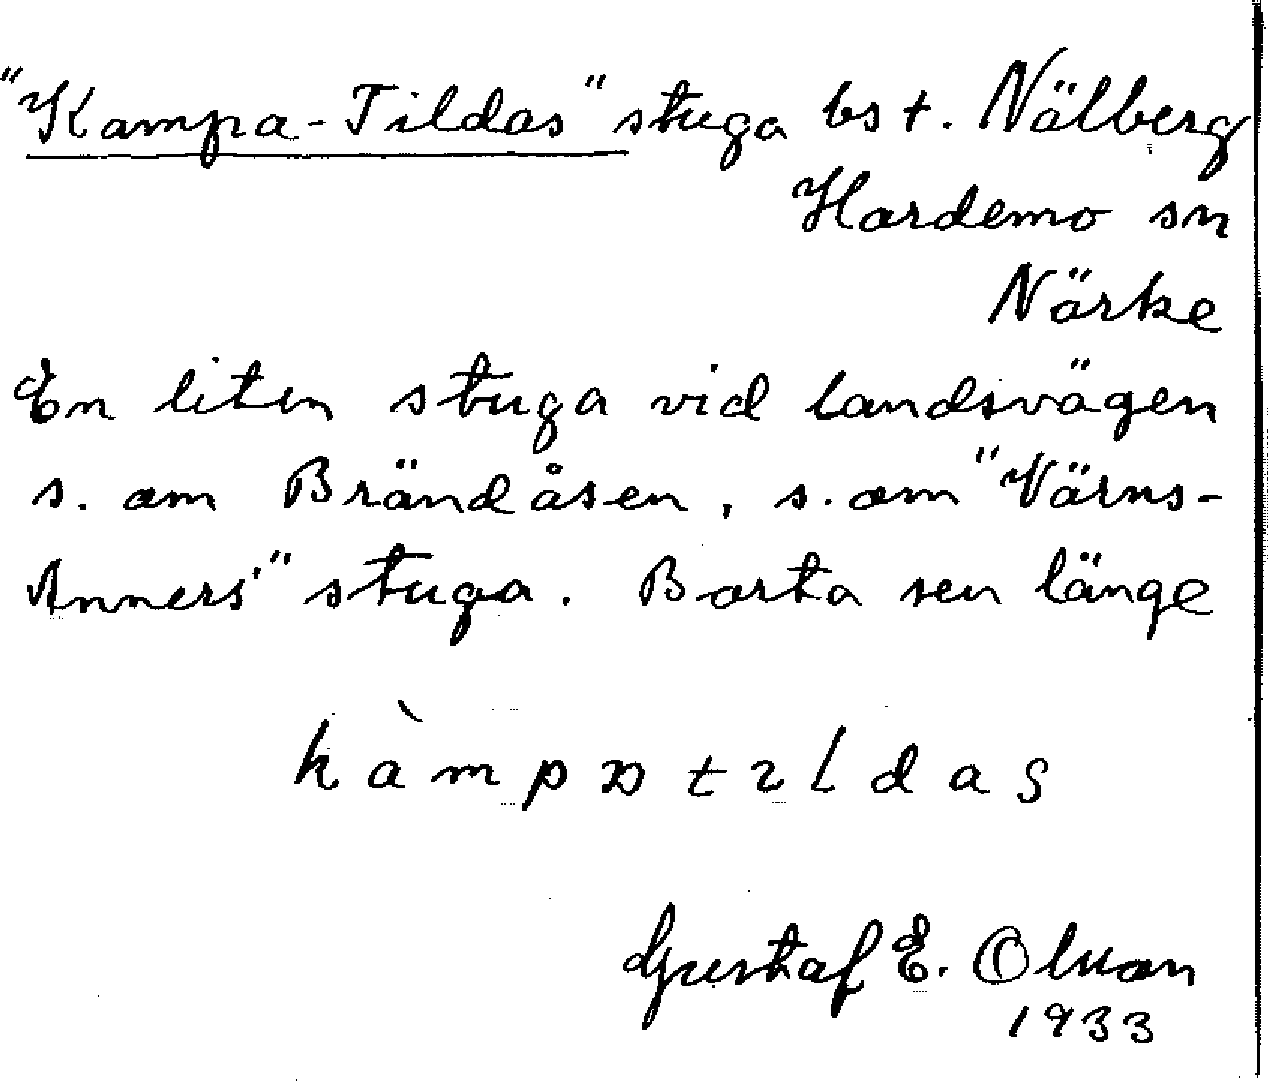 "Kampa-Tildas" stuga bs t. Nälberg
Hardemo sn
Närke
En liten stuga vid landsvägen
s. om Brändåsen, s. om "Värns-
Anners'" stuga. Borta sen länge
kàmpɷtɩldas
Gustaf E. Olsson
1933